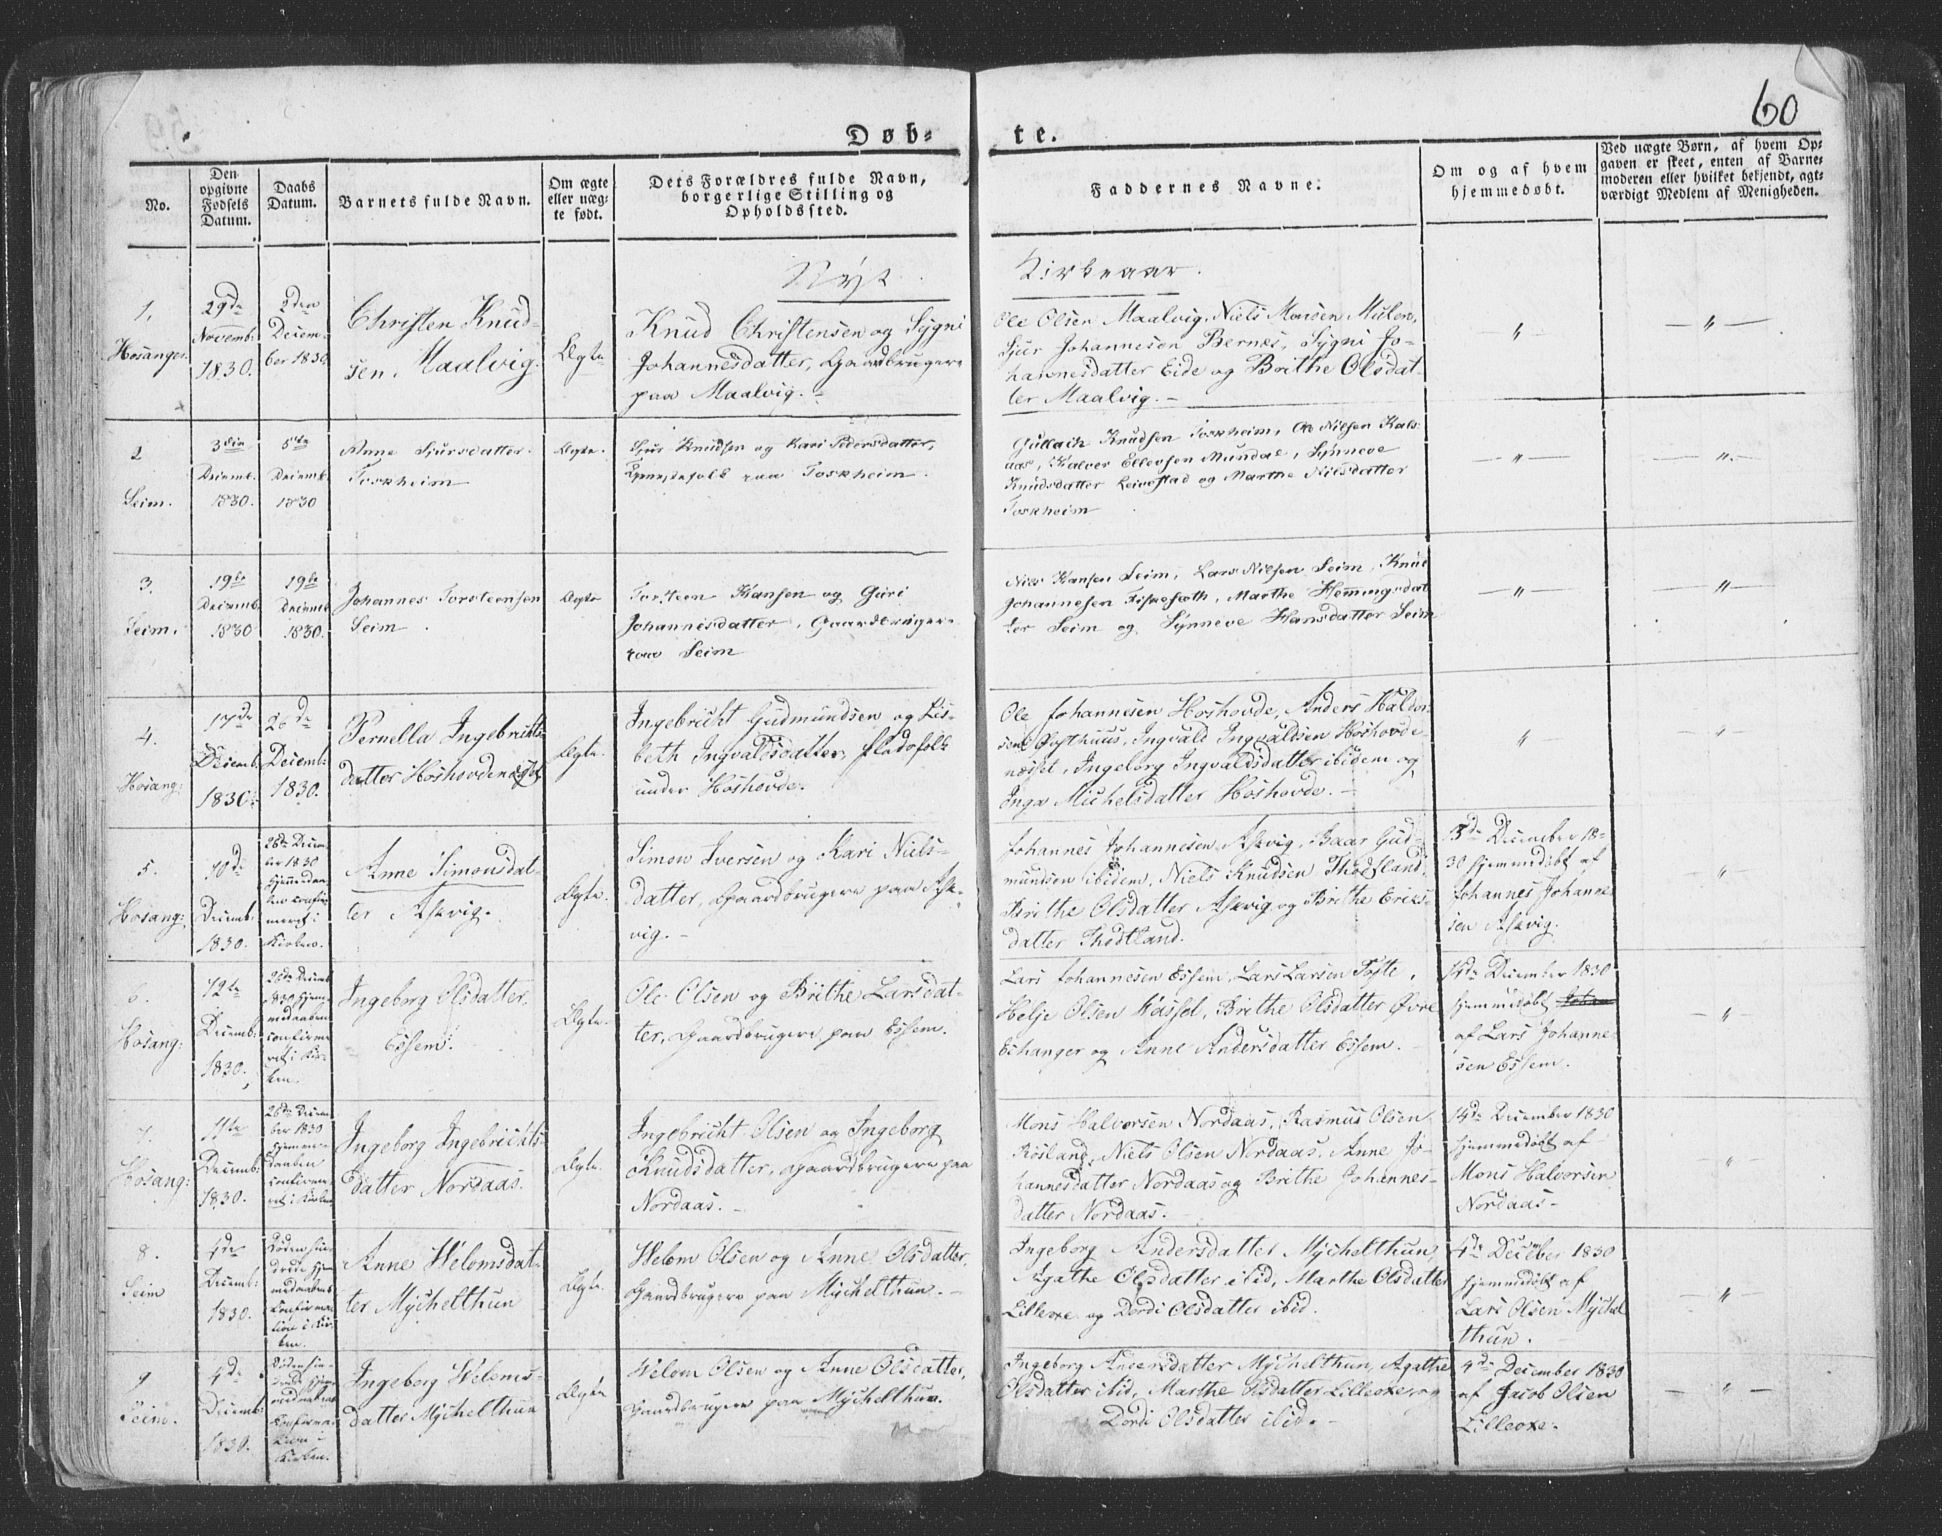 60
Døb-
te.
No.
Den
opgivne
Fødsels
Datum.
Daabs
Datum.
Barnets fulde Navn.
Om ægte
eller uæg-
te født.
Dets Forældres fulde Navn,
borgerlige Stilling og
Opholdssted.
Faddernes Navne.
Om og af hvem
hjemmedøbt.
Ved uægte Børn, af hvem Op-
gaven er skeet, enten af Barne-
moderen eller hvilket bekjendt, agt-
værdigt Medlem af Menigheden.
Nyt
Kirkeaar.
1.
Hosanger
29de
Novemb:
1830.
2den
Decem-
ber 1830
Christen Knud-
sen. Maalvig.
Ægte
Knud Christensen og Sygni
Johannesdatter, Gaardbrugere
paa Maalvig.
Ole Olsen Maalvig, Niels Monsen Mulen,
Sjur Johannesen Bernes, Sygni Jo-
hannesdatter Eide og Brithe Olsdat-
ter Maalvig.
— " —
— " —
2
Seim.
3die
Decemb.
1830.
5te
Decemb.
1830
Anne Sjursdatter
Toskheim
Ægte.
Sjur Knudsen og Kari Pedersdatter,
paa Toskheim.
Gullach Knudsen Toskheim, Ole Nielsen Kals-
aas, Halver Ellevsen Mundal, Synneve
Knudsdatter Leivestad og Marthe Nilsdatter
Toskheim
— " —
— " —
3.
Seim.
19de
Decemb.
1830
19de
Decemb.
1830.
Johannes Torsteensen
Seim.
Ægte
Torsteen Hansen og Guri
Johannesdatter, Gaardbruger-
paa Seim
Niels Hansen Seim, Lars Nilsen Seim, Knud
Johannesen Fiskesæth, Marthe Hemingsdat
ter Seim og Synneve Hansdatter Seim
— " —
— " —
4.
Hosang:
17de
Decemb.
1830.
26de
Decemb:
1830.
Pernella Ingebrichts-
datter Hoshovde
Ægte.
Ingebricht Gudmundsen og Lis-
beth Ingvaldsdatter, Pladsfolk
under Hoshovde.
Ole Johannesen Hoshovde, Anders Haldor-
sen Østhuus, Ingvald Ingvaldsen Hoshovde-
næsset, Ingeborg Ingvaldsdatter ibidem og
Inga Michelsdatter Hoshovde.
"
— " —
5.
Hosang:
10de
Decemb:
1830.
26de Decem-
ber 1830
Hjemmedaa-
ben confir-
meret i
Kirken.
Anne Simonsdat-
ter Askvig.
Ægte.
Simon Iversen og Kari Niels-
datter, Gaardbrugere paa Ask-
vig.
Johannes Johannesen Askvig, Baar Gud-
mundsen ibidem, Niels Knudsen Thodtland,
Brithe Olsdatter Askvig og Brithe Eriks-
datter Thodtland.
13de December 18-
30 hjemmedøbt af
Johannes Johanne-
sen Askvig.
— " —
6.
Hosang:
12te
Decemb:
1830.
26de Decemb:
1830 Hjem-
medaaben
confirme-
ret i Kir-
ken.
Ingeborg Olsdatter.
Essem.
Ægte.
Ole Olsen og Brithe Larsdat-
ter, Gaardbrugere paa Essem.
Lars Johannesen Essem, Lars Larsen Tofte,
Helje Olsen Wassel, Brithe Olsdatter Øvre
Eshanger og Anne Andersdatter Essem.
14de December 1830
hjemmedøbt Johan
af Lars Johanne-
sen Essem.
— " —
7.
Hosang:
11te
Decemb:
1830.
26de Decem-
ber 1830
Hjemme-
daaben
confirme-
ret i Kirken
Ingeborg Ingebrichts-
datter Nordaas.
Ægte.
Ingebricht Olsen og Ingeborg
Knudsdatter, Gaardbrugere paa
Nordaas.
Mons Halvorsen Nordaas, Rasmus Olsen
Røsland, Niels Olsen Nordaas, Anne Jo-
hannesdatter Nordaas og Brithe Johannes-
datter Nordaas.
14de December 1830
hjemmedøbt af
Mons Halvorsen
Nordaas-
— " —
8.
Seim
4de
Decemb:
1830.
Døden hin-
drede Hjem-
medaabens
Confirma-
tion i Kir-
ken.
Anne Welomsdat-
ter Mychelthun
Ægte.
Welom Olsen og Anne Olsdatter,
Gaardbrugere paa Mychelthun.
Ingeborg Andersdatter Mychelthun,
Agathe Olsdatter ibid, Marthe Olsdatter
Lilleoxe og Dordi Olsdatter ibid.
4de December 1830
hjemmedøbt af
Lars Olsen Mychel
thun.
— " —
9
Seim.
4de
Decemb:
1830.
Døden hin-
drede Hjem-
medaabens
Confirma-
tion i
Kirken.
Ingeborg Weloms-
datter Mychelthun
Ægte
Welom Olsen og Anne Olsdatter,
Gaardbrugere paa Mychelthun.
Ingeborg Andersdatter Mychelthun, Agathe
Olsdatter ibid, Marthe Olsdatter Lilleoxe, og
Dordi Olsdatter ibid.
4de December 1830
af Jacob Olsen
Lilleoxe.
— " —